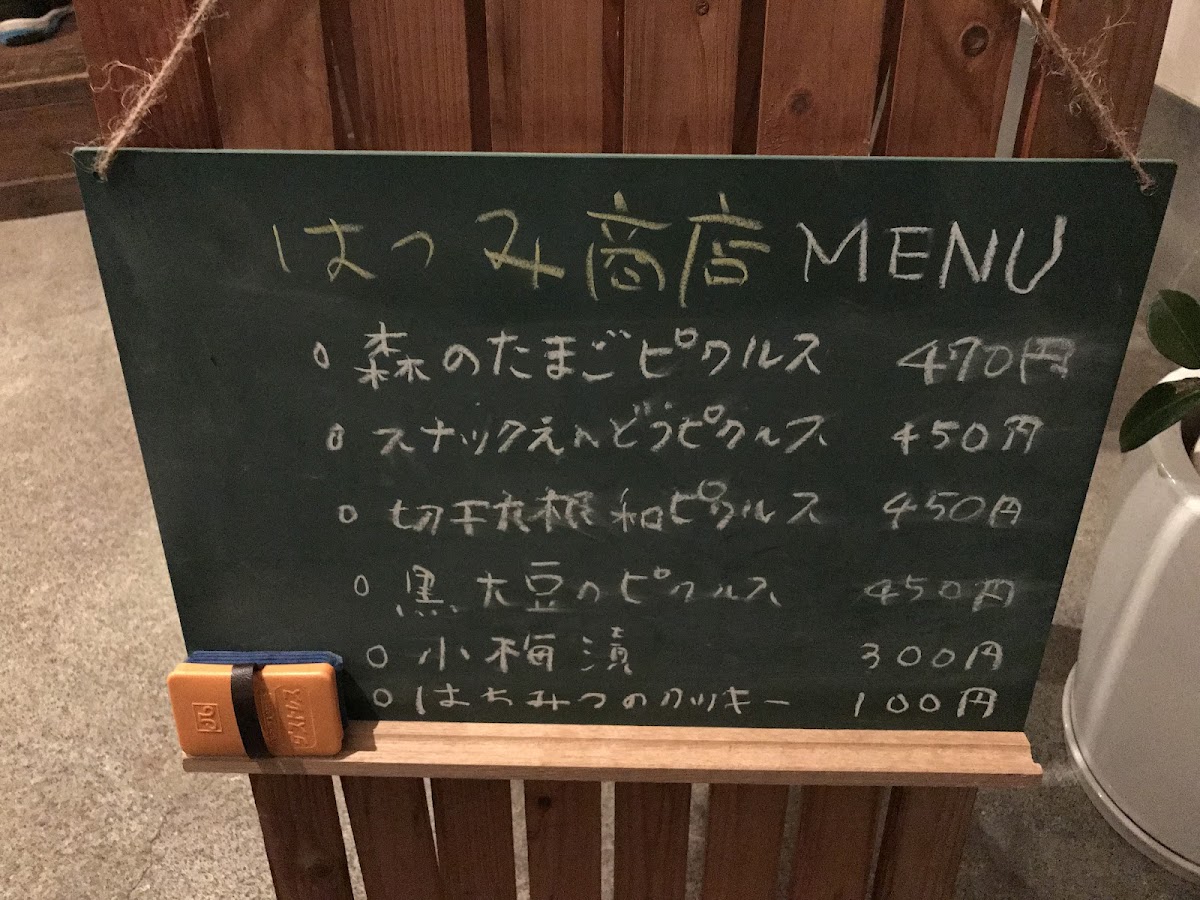 はつみ商店 MENU
○ 森のたまごピクルス 470円
○ スナックえんどうピクルス 450円
○ 切干大根和ピクルス 450円
○ 黒大豆のピクルス 450円
○ 小梅漬 300円
○ はちみつのクッキー 100円
ダストレス